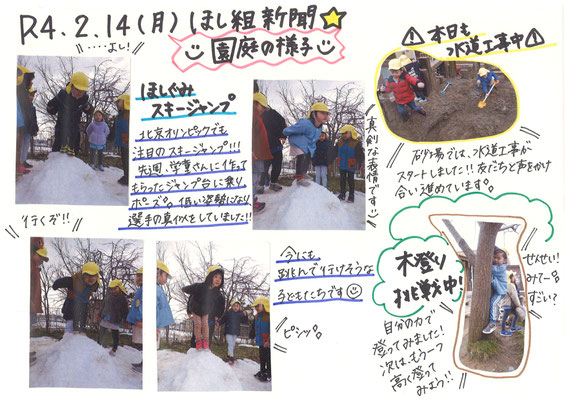 R4.2.14(月)ほし組新聞☆
園庭の様子
‥‥よし!
ほしぐみ
スキージャンプ
北京オリンピックでも
注目のスキージャンプ!!!
先週、学童さんに作って
もらったジャンプ台に乗り、
ポーズ。低い姿勢になり、
選手の真似をしていました!!
真剣な表情です
行くぞ!!
今にも
跳んで行けそうな
子どもたちです
ピシッ。
本日も
水道工事中
砂場では、水道工事が
スタートしました!!友だちと声をかけ
合い進めています。
木登り
挑戦中!
自分の力で
登ってみました!
次は、もう一つ
高く登って
みよう!!
せんせい!
みてー。
すごい?